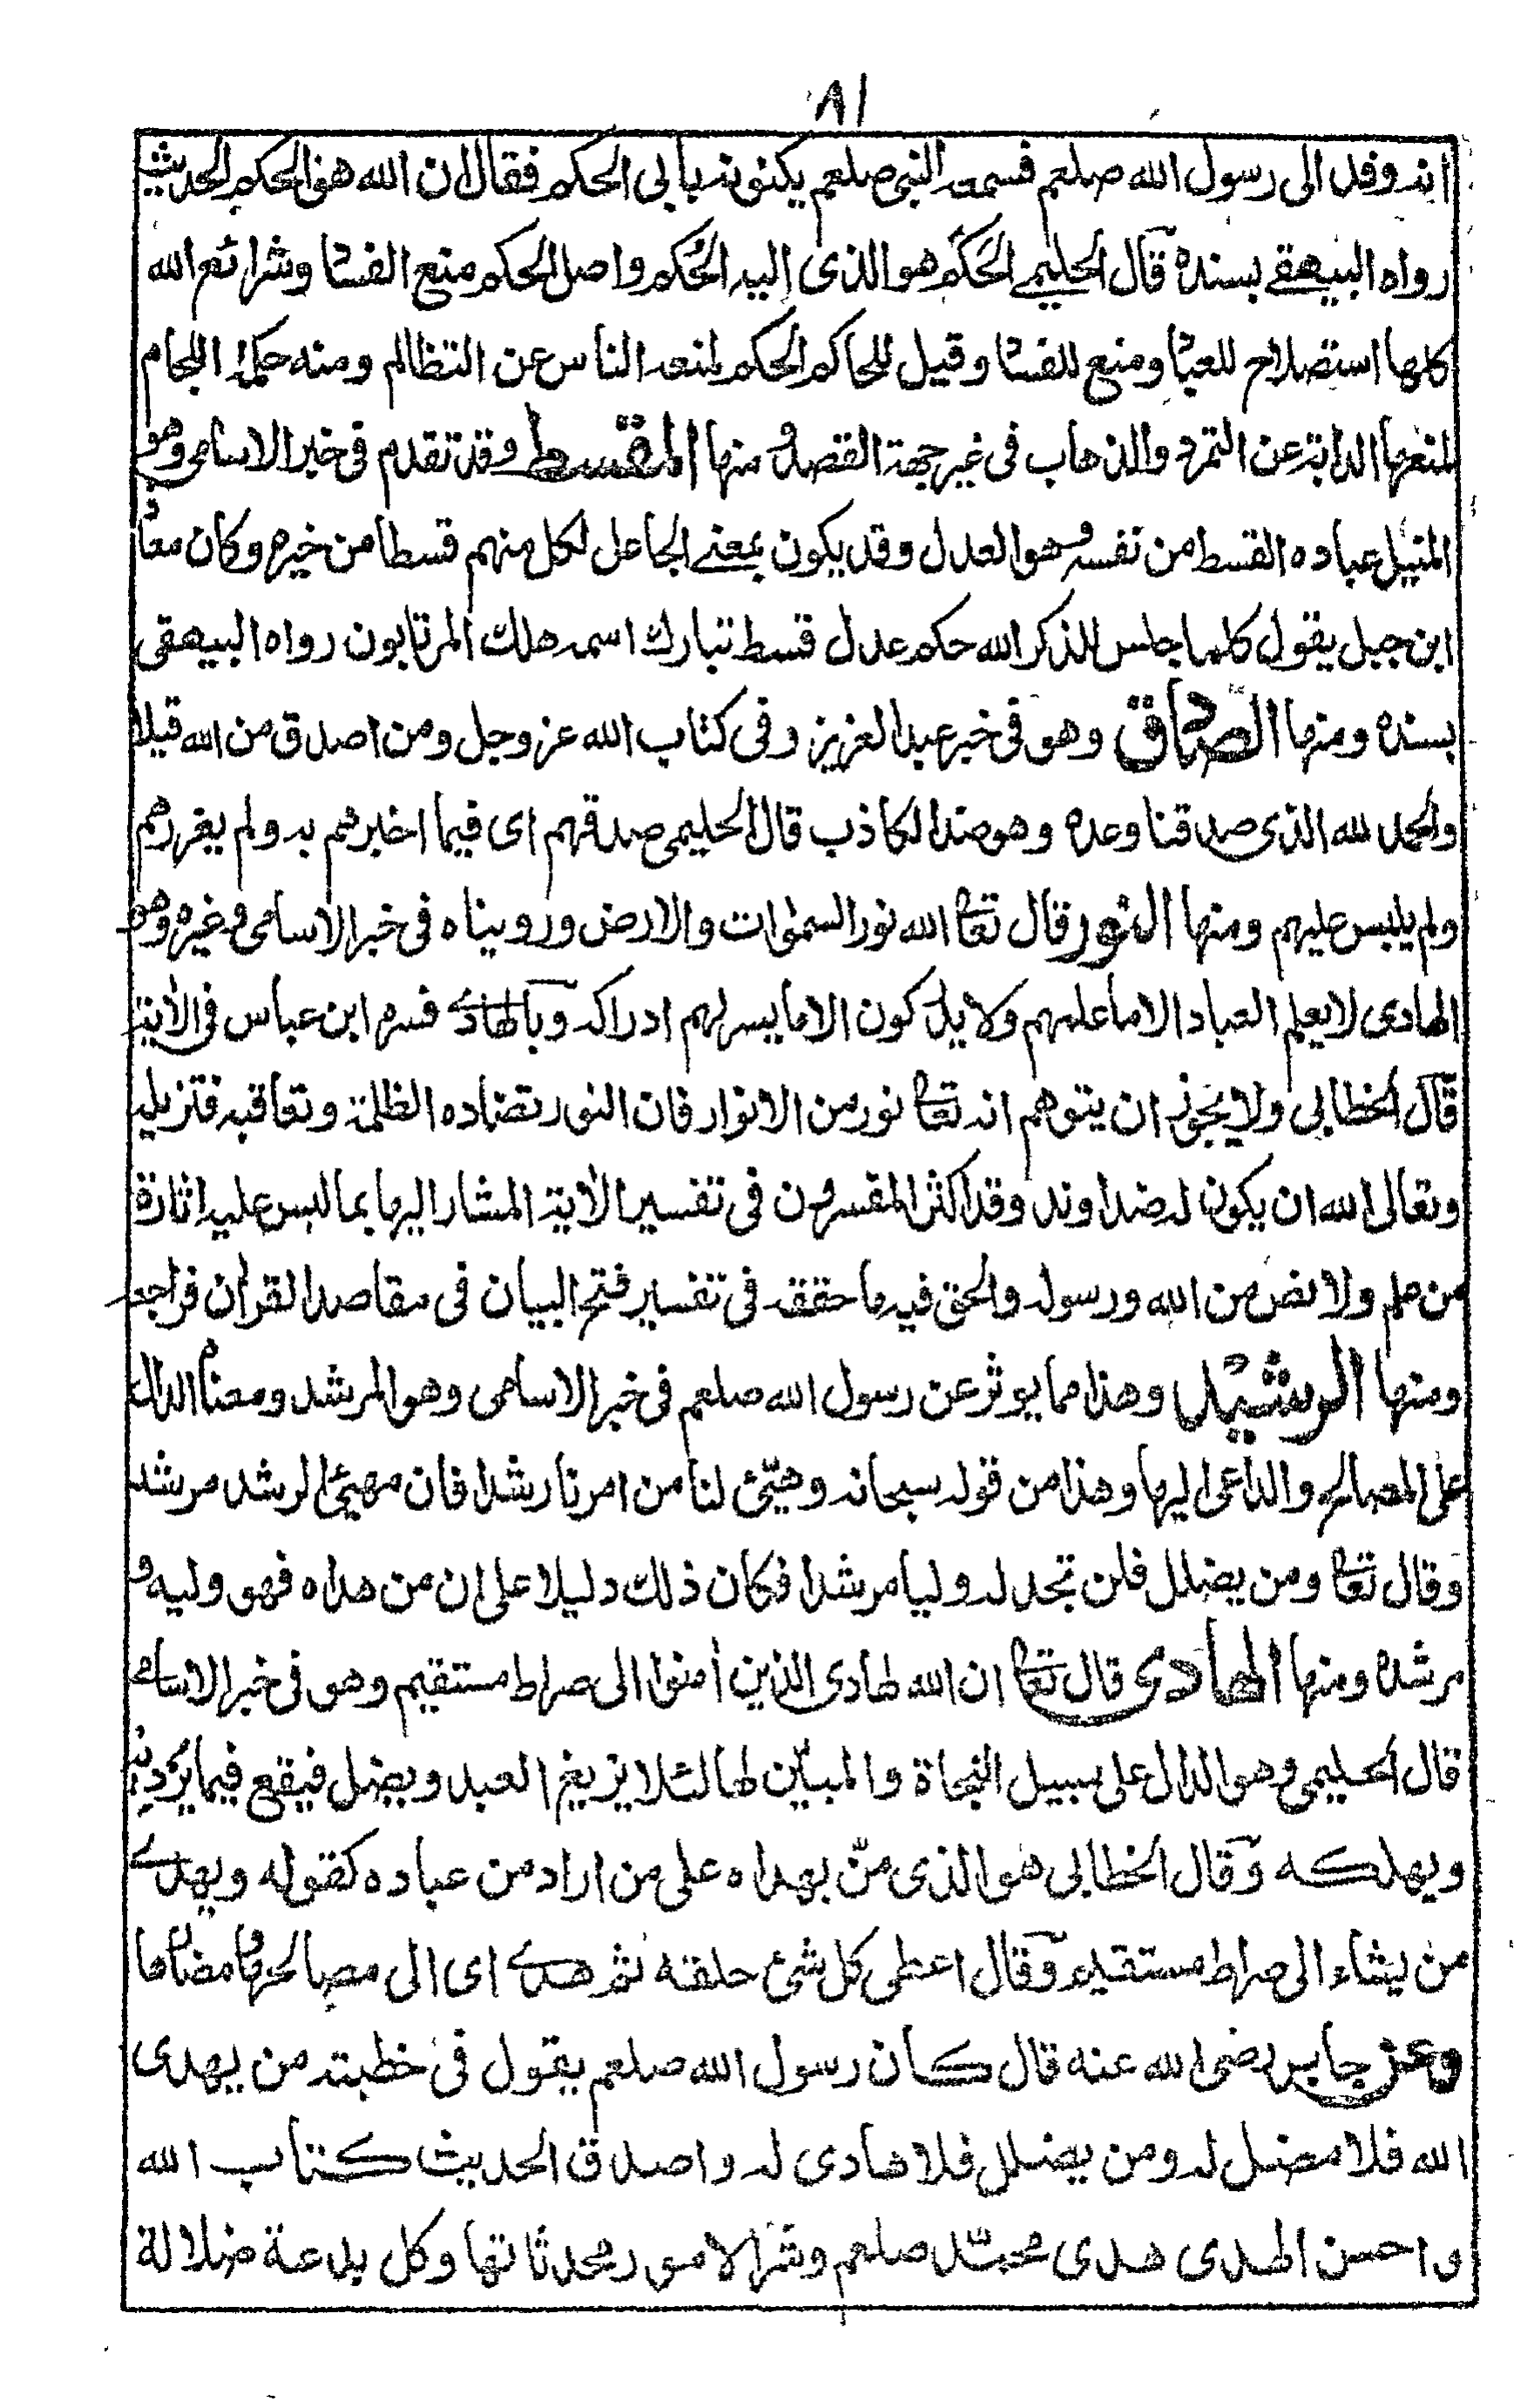 ٨١
انه وفد الى رسول الله صلعم فسمعه النبي صلعم يكنونه بابي الحكم فقال ان الله هو الحكم الحديث
رواه البيهقي بسنده قال الحليمي الحَكَم هو الذى اليه الحُكم واصل الحكم منع الفساد وشرائع الله
كلها استصلاح للعباد ومنع للفساد وقيل للحاكم الحكم لمنعه الناس عن التظالم ومنه حكمة اللجام
لمنعها الدابة عن التمرد والذهاب فى غير جهة القصد ومنها المقسط وقد تقدم فى خبر الاسامى وهو
المنيل عباده القسط من نفسه وهو العدل وقد يكون بمعنى الجاعل لكل منهم قسطا من خيره وكان معاذ
ابن جبل يقول كلما جلس للذكر الله حكم عدل قسط تبارك اسمه هلك المرتابون رواه البيهقى
بسنده ومنها الصادق وهو فى خبر عبد العزيز وفى كتاب الله عز وجل ومن اصدق من الله قيلا
والحمد لله الذى صدقنا وعده وهو ضد الكاذب قال الحليمى صدقهم اى فيما اخبرهم به ولم يغررهم
ولم يلبس عليهم ومنها النور قال تعا الله نور السموات والارض ورويناه فى خبر الاسامى وغيره وهو
الهادى لا يعلم العباد الا ما علمهم ولا يدركون الا ما يسر لهم ادراكه وبالهادى فسره ابن عباس فى الآية
قال الخطابى ولا يجوز ان يتوهم انه تعا نور من الانوار فان النور تضاده الظلمة وتعاقبه فتزيله
وتعالى الله ان يكون له ضد او ند وقد اكثر المفسرون فى تفسير الآية المشار اليها بما ليس عليه اثارة
من علم ولا نص من الله ورسوله والحق فيه ما حققه فى تفسير فتح البيان فى مقاصد القران فراجعه
ومنها الرشيد وهذا مما يوثر عن رسول الله صلعم فى خبر الاسامى وهو المرشد ومعناه الدال
على المصالح والداعى اليها وهذا من قوله سبحانه وهيّئ لنا من امرنا رشدا فان مهيئ الرشد مرشد
وقال تعا ومن يضلل فلن تجد له وليا مرشدا فكان ذلك دليلا على ان من هداه فهو وليه و
مرشده ومنها الهادى قال تعا ان الله لهادى الذين آمنوا الى صراط مستقيم وهو فى خبر الاسامى
قال الحليمى وهو الدال على سبيل النجاة والمبيّن لها لئلا يزيغ العبد ويضل فيقع فيما يرديه
ويهلكه وقال الخطابى هو الذى منّ بهداه على من اراد من عباده كقوله ويهدى
من يشاء الى صراط مستقيم وقال اعطى كل شئ خلقه ثم هدى اى الى مصالحها ومضارها
وعن جابر رضى الله عنه قال كان رسول الله صلعم يقول فى خطبته من يهدى
الله فلا مضل له ومن يضلل فلا هادى له واصدق الحديث كتاب الله
واحسن الهدى هدى محمد صلعم وشر الامور محدثاتها وكل بدعة ضلالة